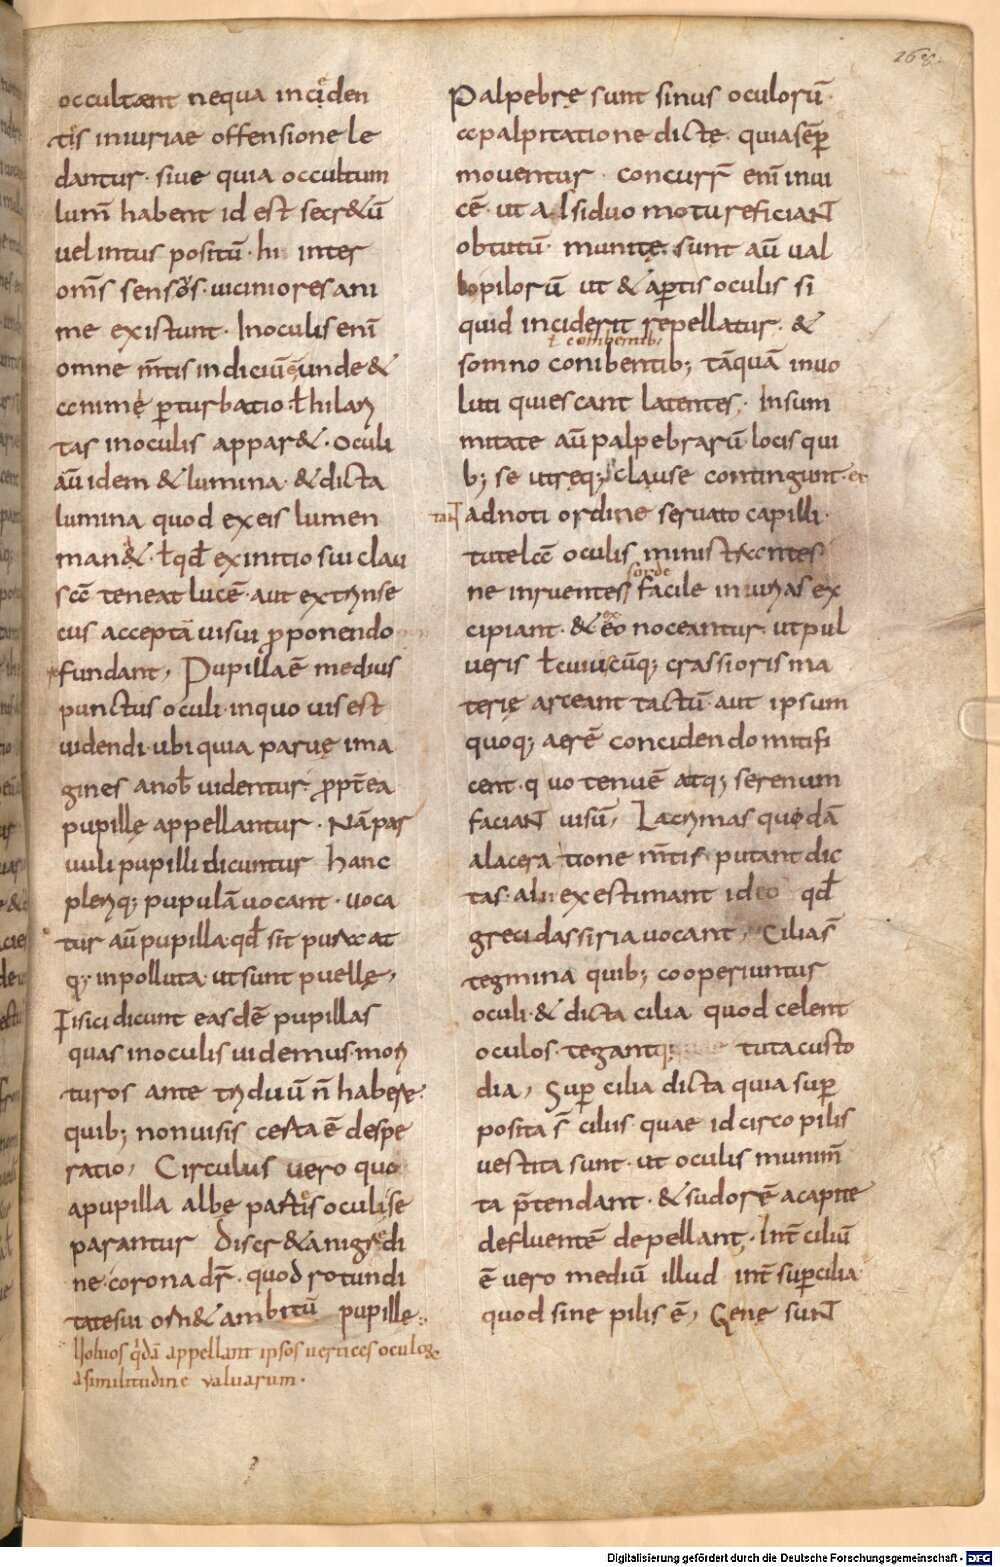 168.
occultent nequa inciden
tis iniuriae offensione le
dantur· siue quia occultum
lum̄ habent id est secr&ū
uel intus positū· hi inter
om̄s sensos· uiciniores ani
me existunt· Inoculis enī
omne m̄tis indiciū unde &
animę ꝑturbatio ł hilari
tas inoculis appar&· Oculi
aū idem & lumina· & dicta
lumina quod exeis lumen
man&· ł qđ exinitio sui clau
sā teneat lucē· aut extrinse
cus acceptā uisui ꝓponendo
fundant, Pupilla ē medius
punctus oculi· inquo uis est
uidendi· ubi quia paruę ima
gines a nob̄ uidentur· ꝓpt̄ea
pupillę appellantur· Nā par
uuli pupilli dicuntur hanc
pleriq; pupulā uocant· uoca
tur aū pupilla· qđ sit pura at
q; inpolluta· ut sunt puellę,
Fisici dicunt easdē pupillas
quas inoculis uidemus· mori
turos ante triduū n̄ habere·
quib; nonuisis certa ē despe
ratio, Circulus uero quo
apupilla albę partis oculi se
parantur discr& anigredi
ne· corona dr̄· quod rotundi
tate sui orn& ambitū pupillę·
Uoluos q̇dā appellant ipsos uertices oculoꝝ
asimilitudine valuarum·
Palpebrę sunt sinus oculorū·
a palpitatione dictę· quia sēꝑ
mouentur· concurr̄ enī inui
cē· ut adsiduo motu reficiant
obtutū· munitę sunt aū ual
lo pilorū ut & aꝑtis oculis si
quid inciderit repellatur· &
ł coniuentib;
somno conibentib; tāquā inuo
luti quiescant latentes· Insum
mitate aū palpebrarū· locis qui
b; se utreq; clause contingunt· ex
tant adnoti ordine seruato capilli·
tutelā oculis ministrantes
sorde
ne inruentes facile iniurias ex
cipiant· & ex eo noceantur· ut pul
ueris ł cuiuscūq; crassioris ma
terię arceant tactū· aut ipsum
quoq; aerē concidendo mitifi
cent· quo tenuē atq; serenum
faciant uisū, Lacrimas quidā
alaceratione m̄tis putant dic
tas· alii exestimant ideo qđ
greci dassiria uocant, Cilia s̄
tegmina quib; cooperiuntur
oculi· & dicta cilia quod celent
oculos· tegantq; tuta custo
dia, Suꝑcilia dicta quia suꝑ
posita s̄ ciliis· quae idcirco pilis
uestita sunt· ut oculis munim̄
ta p̄tendant· & sudorē acapite
defluentē depellant· Int̄ciliū
ē uero mediū illud int̄ suꝑcilia
quod sine pilis ē, Genę sunt
Digitalisierung gefördert durch die Deutsche Forschungsgemeinschaft - DFG